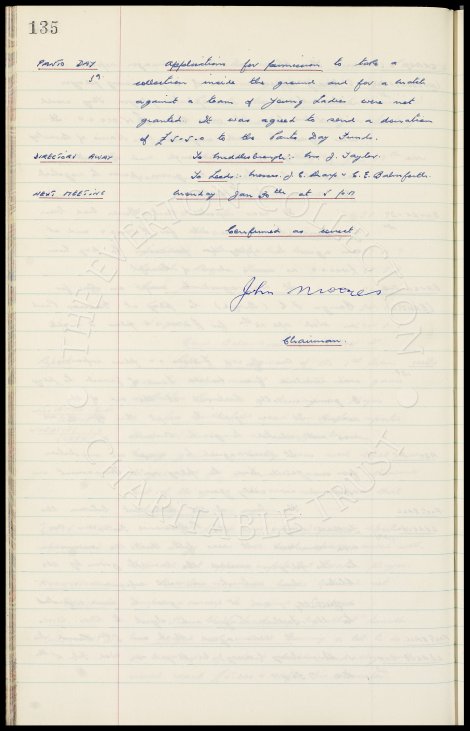 135
PANTO DAY Applications for permission to take a
collection inside the ground and for a match
against a team of Young Ladies were not
granted. It was agreed to send a donation
of £5-5-0 to the Panto Day Funds.
DIRECTORS AWAY To Middlesbrough:- Mr J. Taylor.
To Leeds:- Messrs. J. C. Sharp & C. E. Balmforth.
NEXT MEETING Monday Jan 30th at 5 pm
Confirmed as correct
John Moores
Chairman.
THE EVERTON COLLECTION
CHARITABLE TRUST